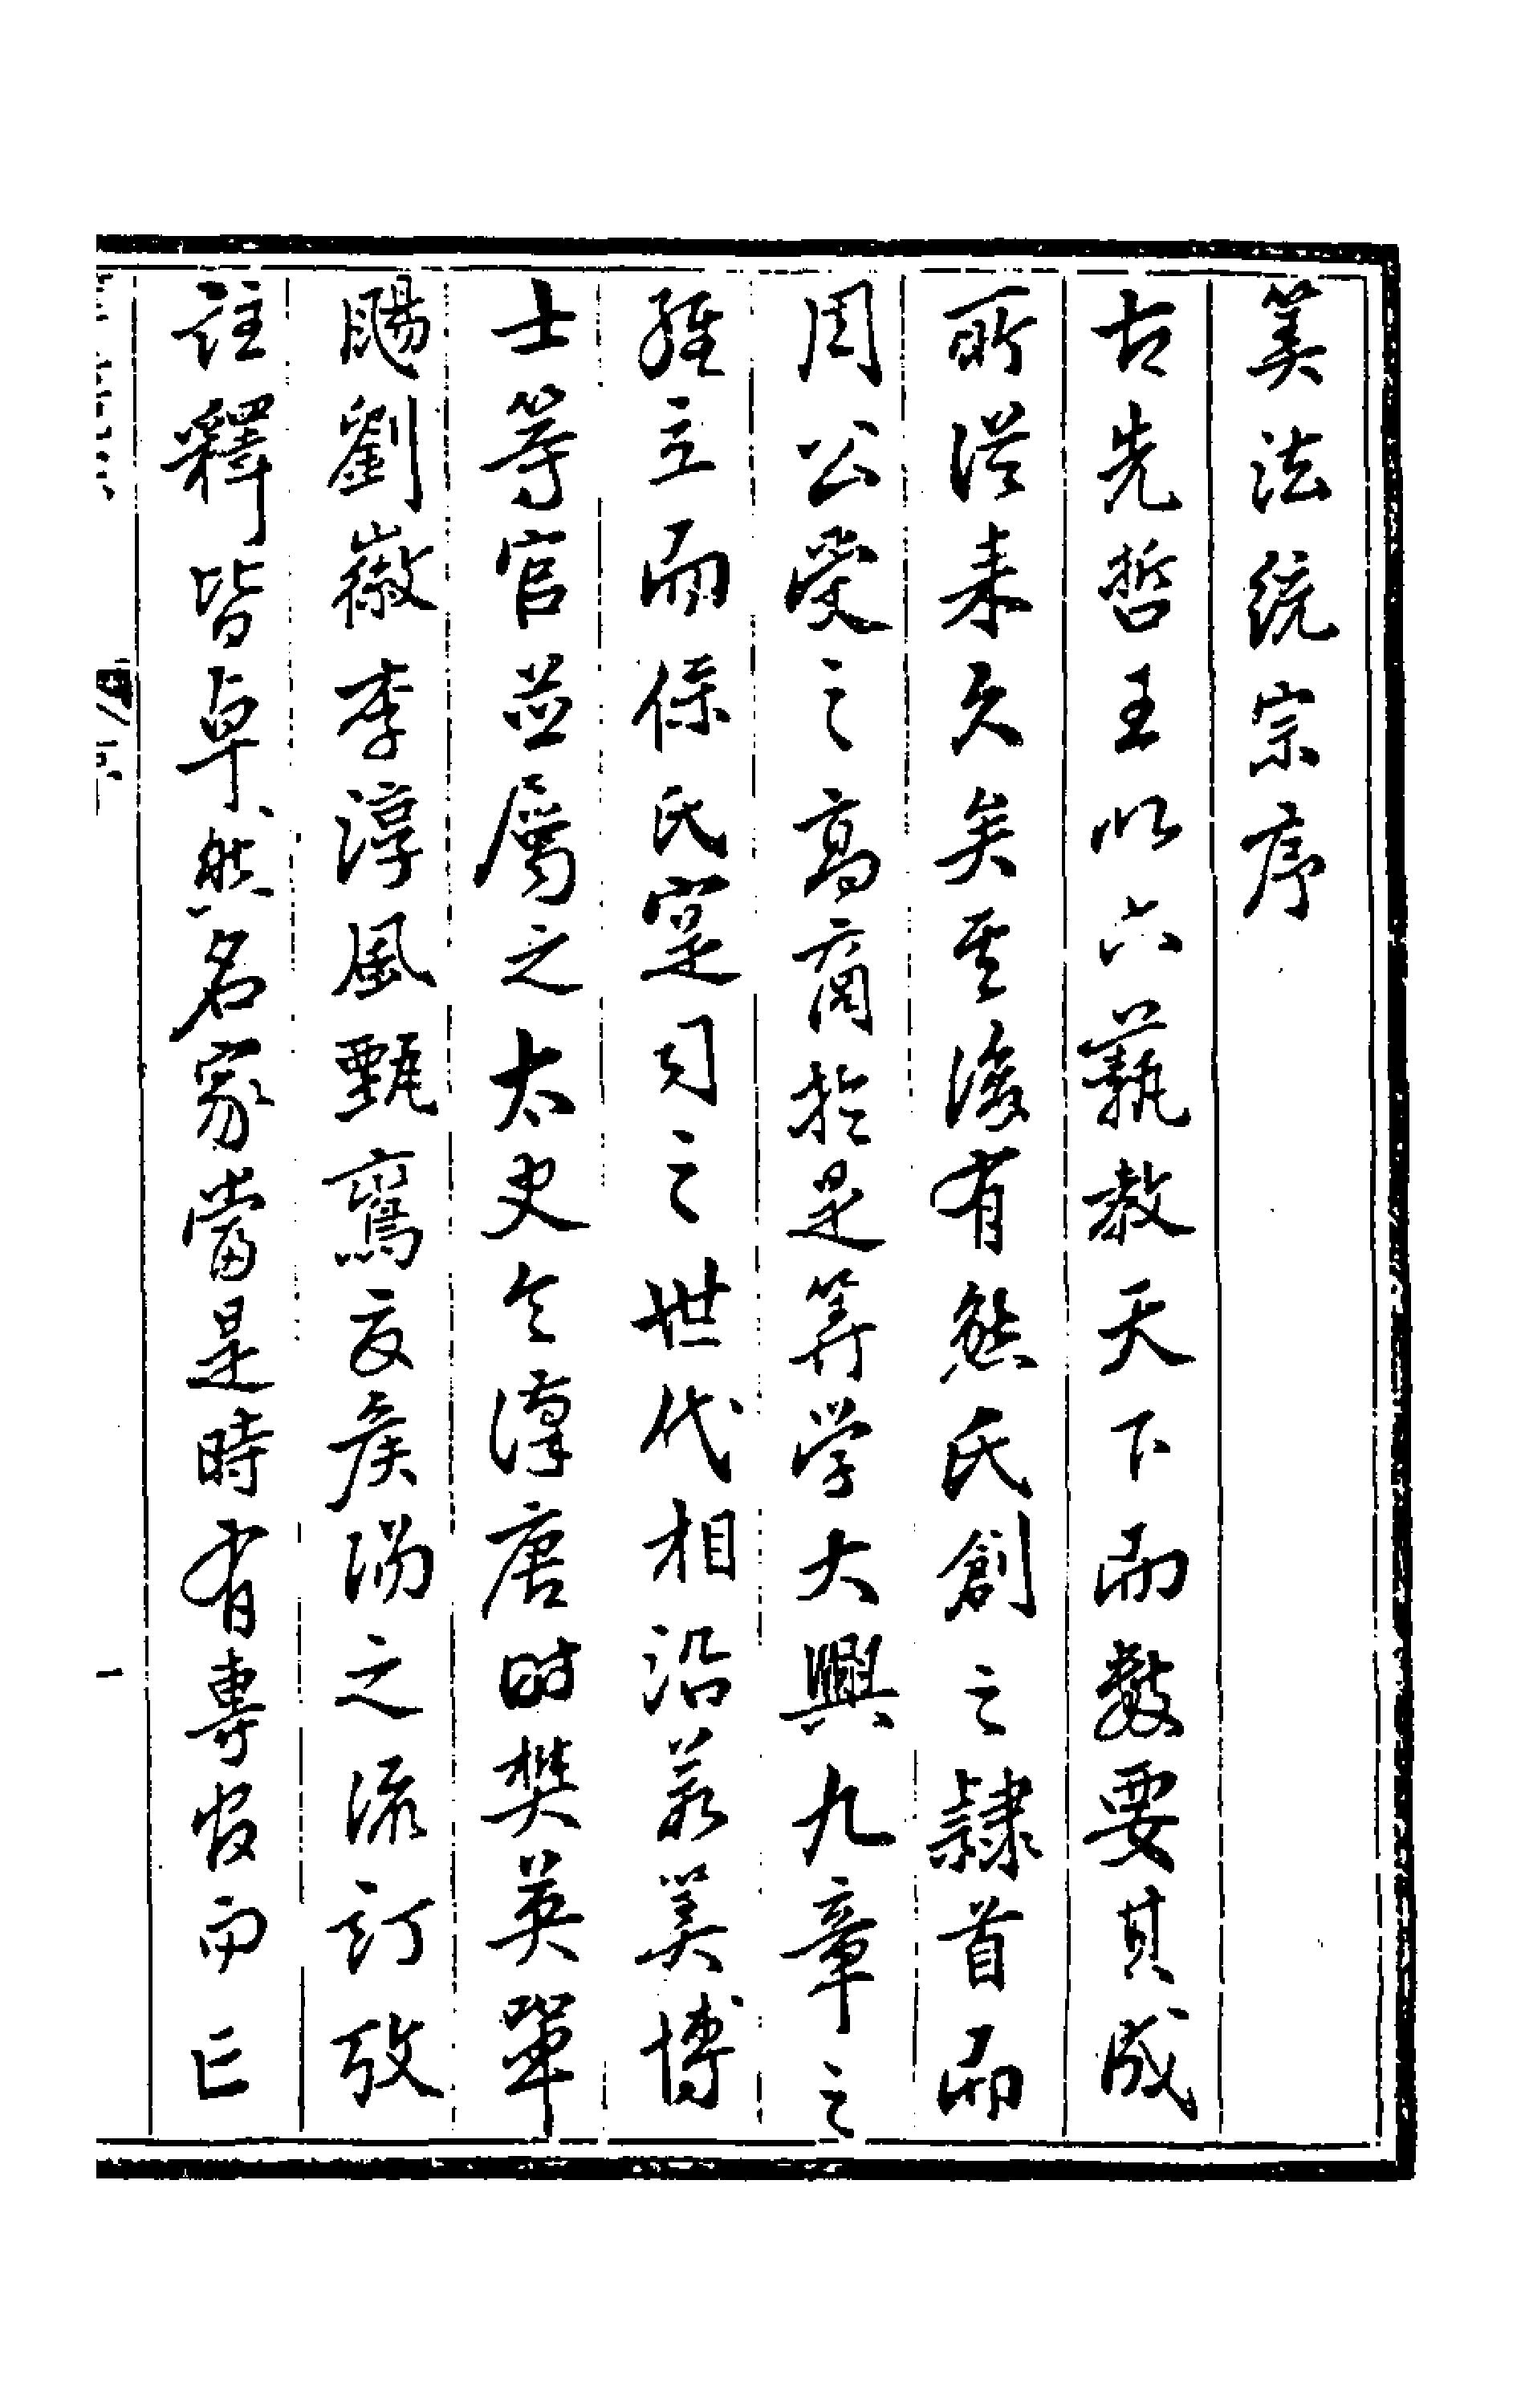 筭法統宗序
古先哲王以六藝教天下而數要其成
所從来久矣其後有熊氏創之隷首而
周公受之高商於是筭学大興九章之
經立而保氏寔司之世代相沿若筭博
士等官並屬之太史令漢唐時樊英單
颺劉徽李淳風甄鸞夏侯陽之流訂攷
註釋皆卓然名家當是時有專官而亡